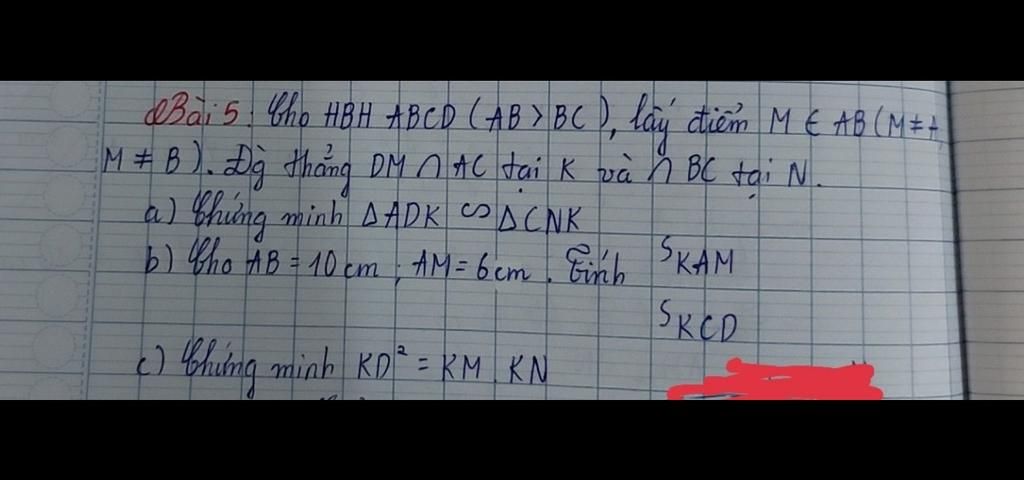 Bài 5: Cho HBH ABCD (AB > BC), lấy điểm M ∈ AB (M ≠
M ≠ B). Đg thẳng DM ∩ AC tại K và ∩ BC tại N.
a) Chứng minh ΔADK ∽ ΔCNK
b) Cho AB = 10 cm; AM = 6 cm. Tính S KAM
S KCD
c) Chứng minh KD² = KM . KN